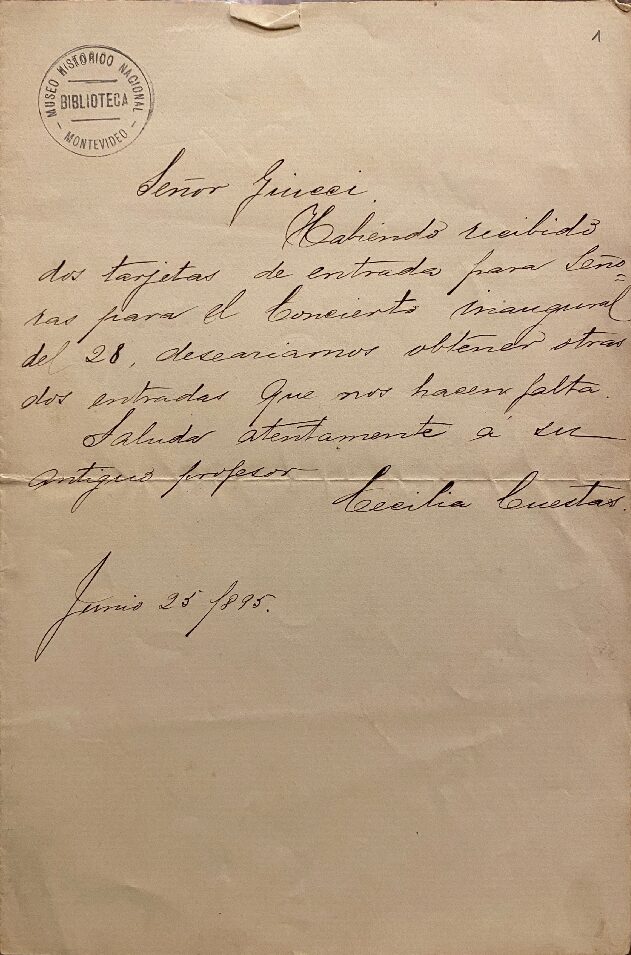 1
MUSEO HISTORICO NACIONAL
BIBLIOTECA
- MONTEVIDEO -
Señor Giucci.
Habiendo recibido
dos tarjetas de entrada para Seño=
ras para el Concierto inaugural
del 28, deseariamos obtener otras
dos entradas que nos hacen falta.
Saluda atentamente á su
antiguo profesor
Cecilia Cuestas.
Junio 25/895.